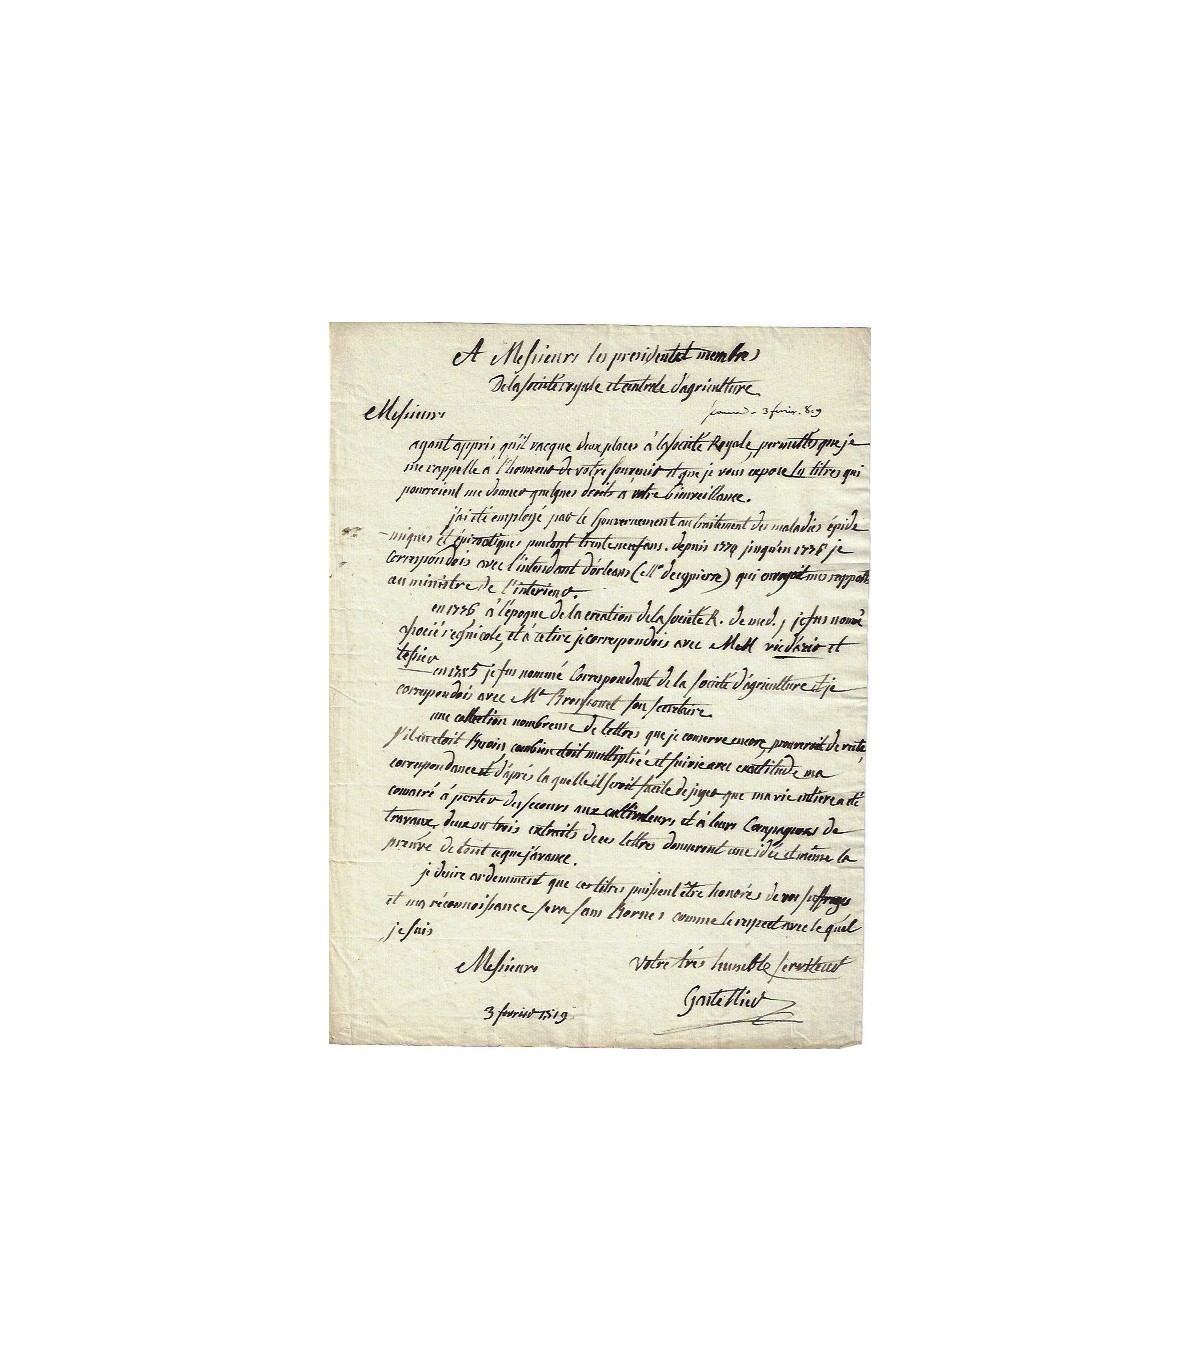 A Messieurs les president et membres
De la société royale et centrale d'agriculture.
3 fevr. 819
Messieurs
ayant appris qu'il vacque deux places à la société Royale, permettés que je
me rappelle à l'honneur de votre souvenir et que je vous expose les titres qui
pourroient me donner quelques droits à votre bienveillance.
j'ai été employé par le Gouvernement au traitement des maladies épidé
miques et épizootiques pendant trente neuf ans. depuis 1770 jusqu'en 1776 je
correspondois avec l'intendant d'orleans (Mr. decypierre) qui envoyoit mes rapports
au ministre de l'interieur.
en 1776 à l'époque de la création de la société R. de med., je fus nommé
associé regnicole, et à ce titre je correspondois avec MM vicdazir et
tessier
en 1785 je fus nommé Correspondant de la société d'agriculture et je
correspondois avec Mr Broussonet son secretaire.
une collection nombreuse de lettres que je conserve encore, prouveroit de reste,
s'il en étoit Besoin, combien étoit multipliée et suivie avec exactitude ma
correspondance et d'aprés la quelle il seroit facile de juger que ma vie entiere a été
consacré à porter des secours aux cultivateurs et à leurs Compagnons de
travaux. deux ou trois extraits de ces lettres donneront une idée et même la
preuve de tout ce que j'avance.
je desire ardemment que ces titres puissent être honorés de vos suffrages
et ma réconnoissance sera sans Bornes comme le respect avec le quel
je suis
Messieurs votre trés humble serviteur
Gastellier
3 fevrier 1819